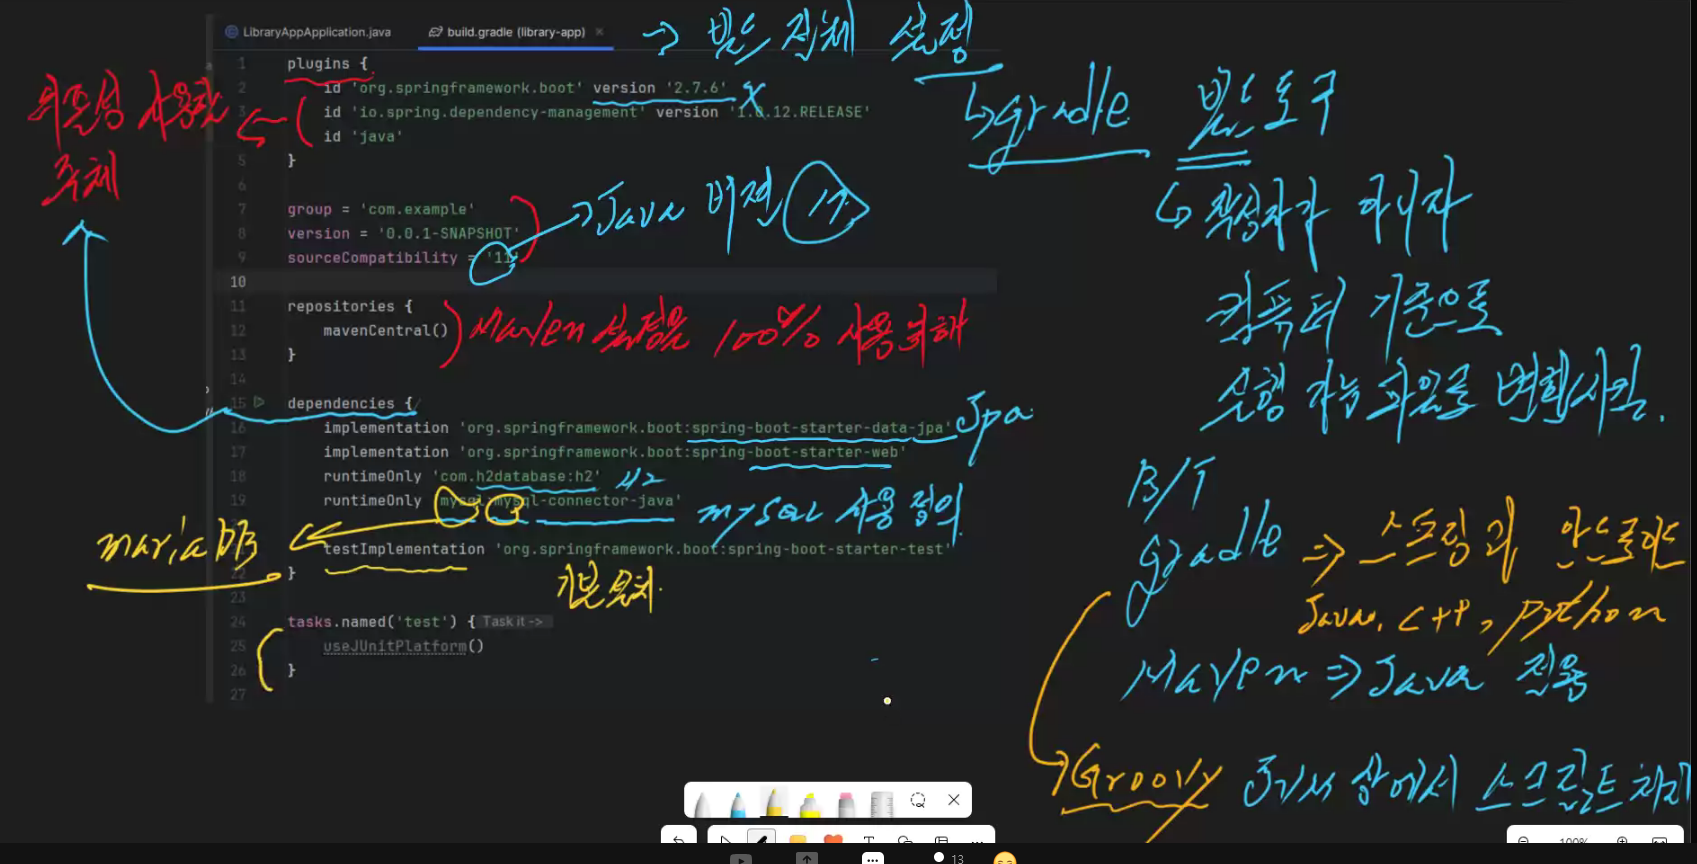 LibraryAppApplication.java
build.gradle (library-app)
→ 빌드 전체 설정
1 plugins {
2 id 'org.springframework.boot' version '2.7.6' X
3 id 'io.spring.dependency-management' version '1.0.12.RELEASE'
4 id 'java'
5 }
6
7 group = 'com.example'
8 version = '0.0.1-SNAPSHOT'
9 sourceCompatibility = '11'
10
11 repositories {
12 mavenCentral()
13 }
14
15 dependencies {
16 implementation 'org.springframework.boot:spring-boot-starter-data-jpa'
17 implementation 'org.springframework.boot:spring-boot-starter-web'
18 runtimeOnly 'com.h2database:h2'
19 runtimeOnly 'mysql:mysql-connector-java'
21 testImplementation 'org.springframework.boot:spring-boot-starter-test'
22 }
23
24 tasks.named('test') { Task it ->
25 useJUnitPlatform()
26 }
27
의존성 사용할
주체
Java 버전
Maven 설정을 100% 사용 위해
Jpa
H2
mysql 사용 정의
mariaDB
기본 유지.
↳ gradle 빌드 도구
↳ 작성자가 아니라
컴퓨터 기준으로
실행 가능 파일로 변환시킴.
B/T
gradle ⇒ 스프링 외 안드로이드
Java, C++, python
Maven ⇒ Java 전용
→ Groovy 상에서 스크립트 처리
100%
13